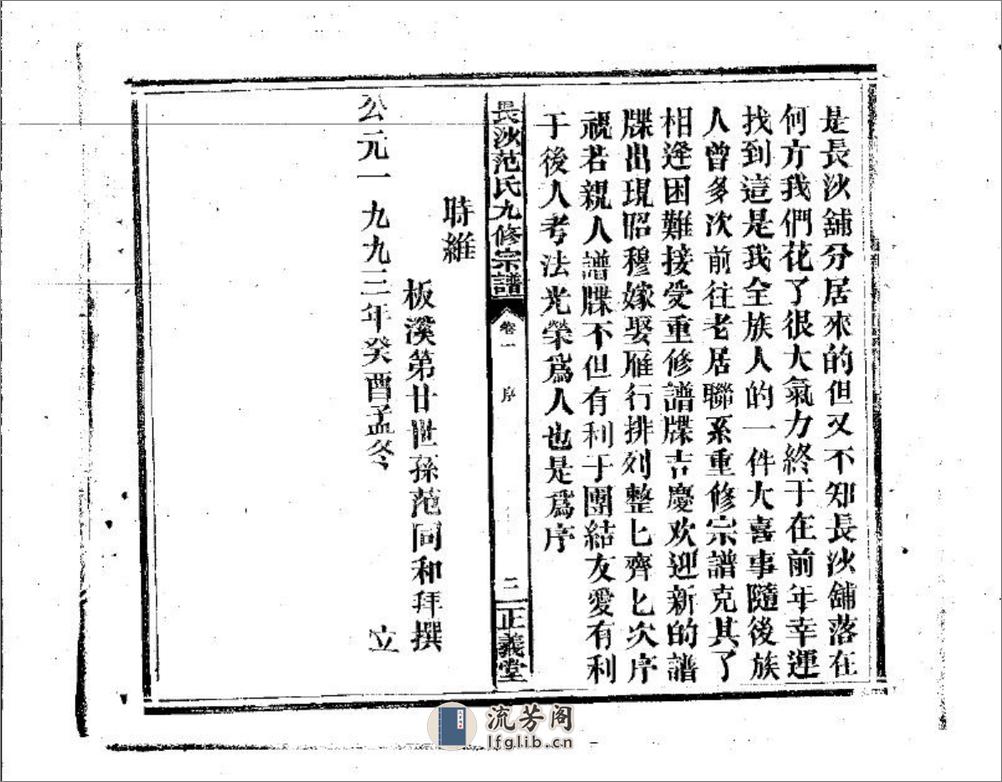 是長沙舖分居來的但又不知長沙舖落在
何方我們花了很大氣力終于在前年幸運
找到這是我全族人的一件大喜事隨後族
人曾多次前往老居聯系重修宗譜克其了
相逢困難接受重修譜牒吉慶欢迎新的譜
牒出現昭穆嫁娶雁行排列整匕齊匕次序
視若親人譜牒不但有利于團結友愛有利
于後人考法光榮爲人也是爲序
長沙范氏九修宗譜
卷一
序
二
正義堂
時維
板溪第廿世孫范同和拜撰
公元一九九三年癸酉孟冬
立
流芳阁
lfglib.cn